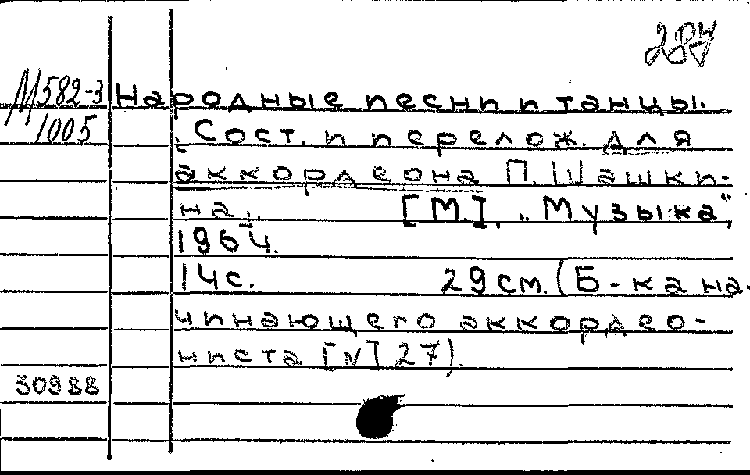 287
М582-3
1005
Народные песни и танцы.
Сост. и перелож. для
аккордеона П. Шашки-
на. [М.], „Музыка“,
1964.
14с. 29см. (Б-ка на-
чинающего аккордео-
ниста [№] 27).
30988